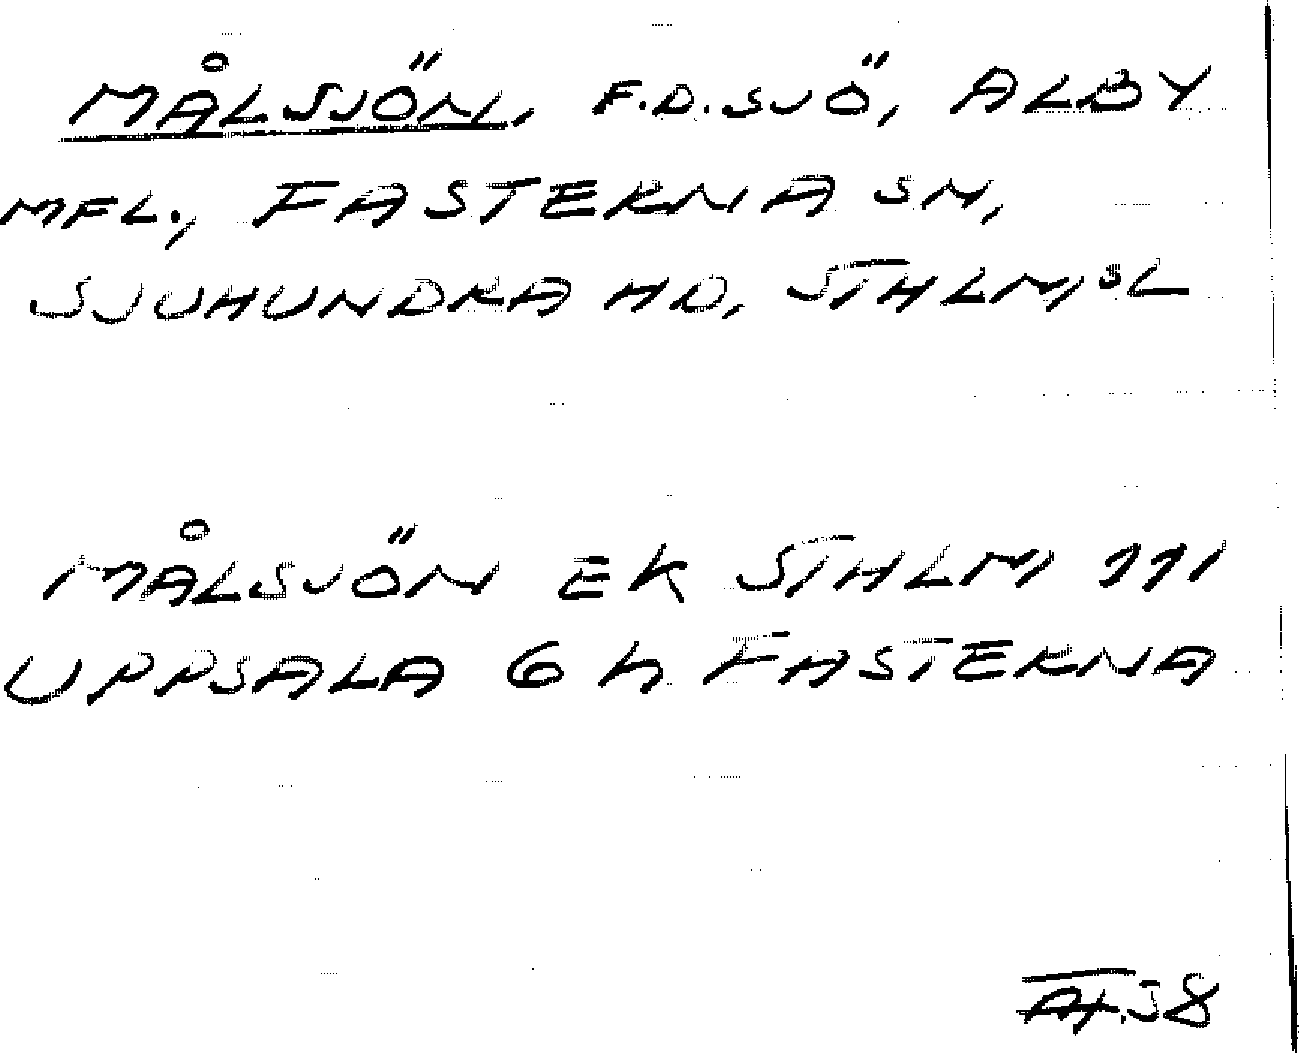 MÅLSJÖN, F.D. SJÖ, ALBY
MFL., FASTERNA SN,
SJUHUNDRA HD, STHLMSL
MÅLSJÖN EK STHLM 111
UPPSALA 6 h FASTERNA